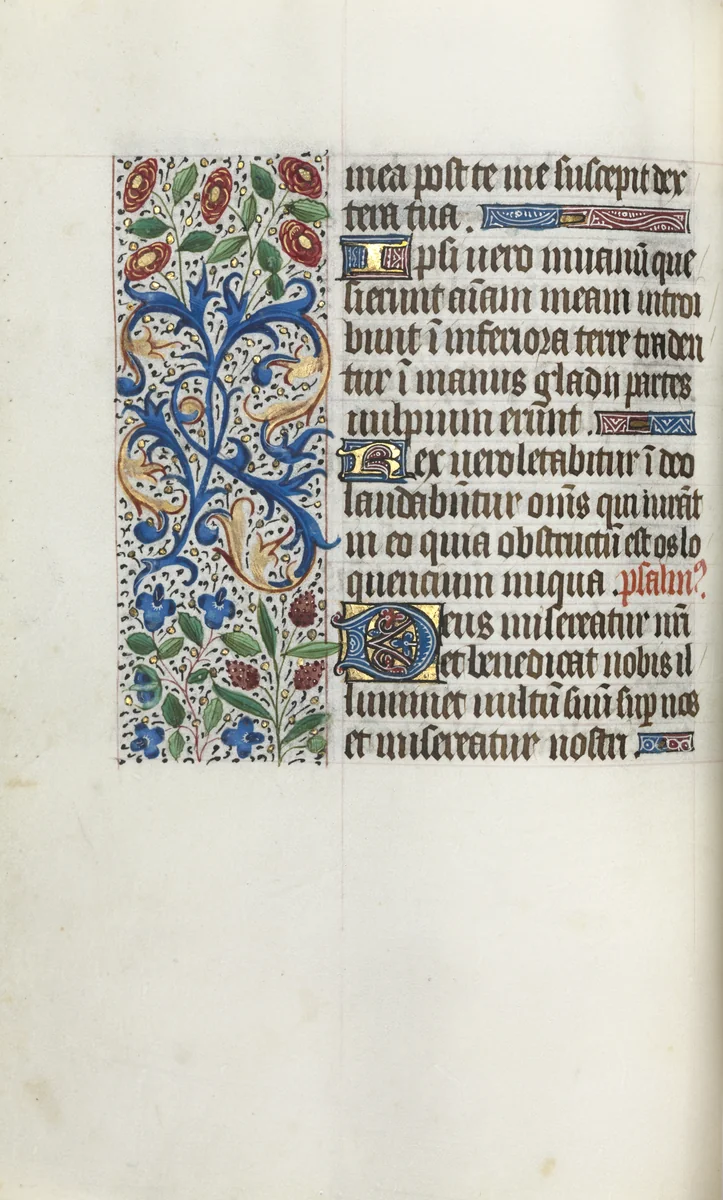 mea post te me suscepit dex
tera tua.
Ipsi uero inuanū que
sierunt aīam meam introi
bunt ī inferiora terre traden
tur ī manus gladij partes
uulpium erunt.
Rex uero letabitur ī deo
laudabūtur om̄s qui iurāt
in eo quia obstructū est os lo
quencium iniqua. psalmꝰ.
Deus misereatur nr̄i
et benedicat nobis il
luminet uultū suū suꝑ nos
et misereatur nostri.